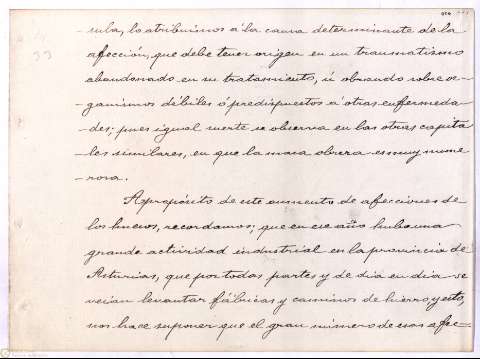 - suba, lo atribuimos á la causa determinante de la
afección, que debe tener origen en un traumatismo
abandonado en su tratamiento, ú obrando sobre or-
-ganismos débiles ó predispuestos á otras enfermeda-
-des; pues igual suerte se observa en las otras capita-
-les similares, en que la masa obrera es muy nume-
-rosa.
Apropósito de este aumento de afecciones de
los huesos, recordamos; que en ese año hubo una
grande actividad industrial en la provincia de
Asturias, que por todas partes y de dia en dia se
veian levantar fábricas y caminos de hierro y esto,
nos hace suponer que el gran número de esas afec-